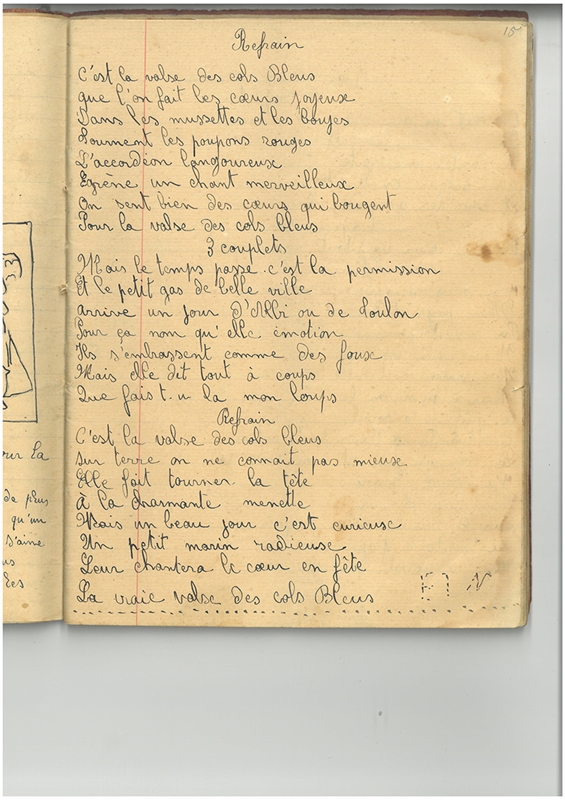 15
Refrain
C'est la valse des cols Bleus
que l'on fait les cœurs joyeux
Dans les mussettes et les bouges
Tournent les poupons rouges
L'accordéon langoureux
Egrène un chant merveilleux
On sent bien des cœurs qui bougent
Pour la valse des cols bleus
3 couplets
Mais le temps passe. c'est la permission
Et le petit gas de belle ville
arrive un jour D'Albi ou de Toulon
Pour ça nom qu'elle émotion
Ils s'embrassent comme des foux
Mais elle dit tout à coups
Que fais t-u la mon loups
Refrain
C'est la valse des cols bleus
sur terre on ne connait pas mieux
Elle fait tourner la tête
à la charmante menette
Mais un beau jour c'est curieux
Un petit marin radieuse
Leur chantera le cœur en fête
La vraie valse des cols Bleus
FIN
our la
de plus
qu'un
s'aime
us